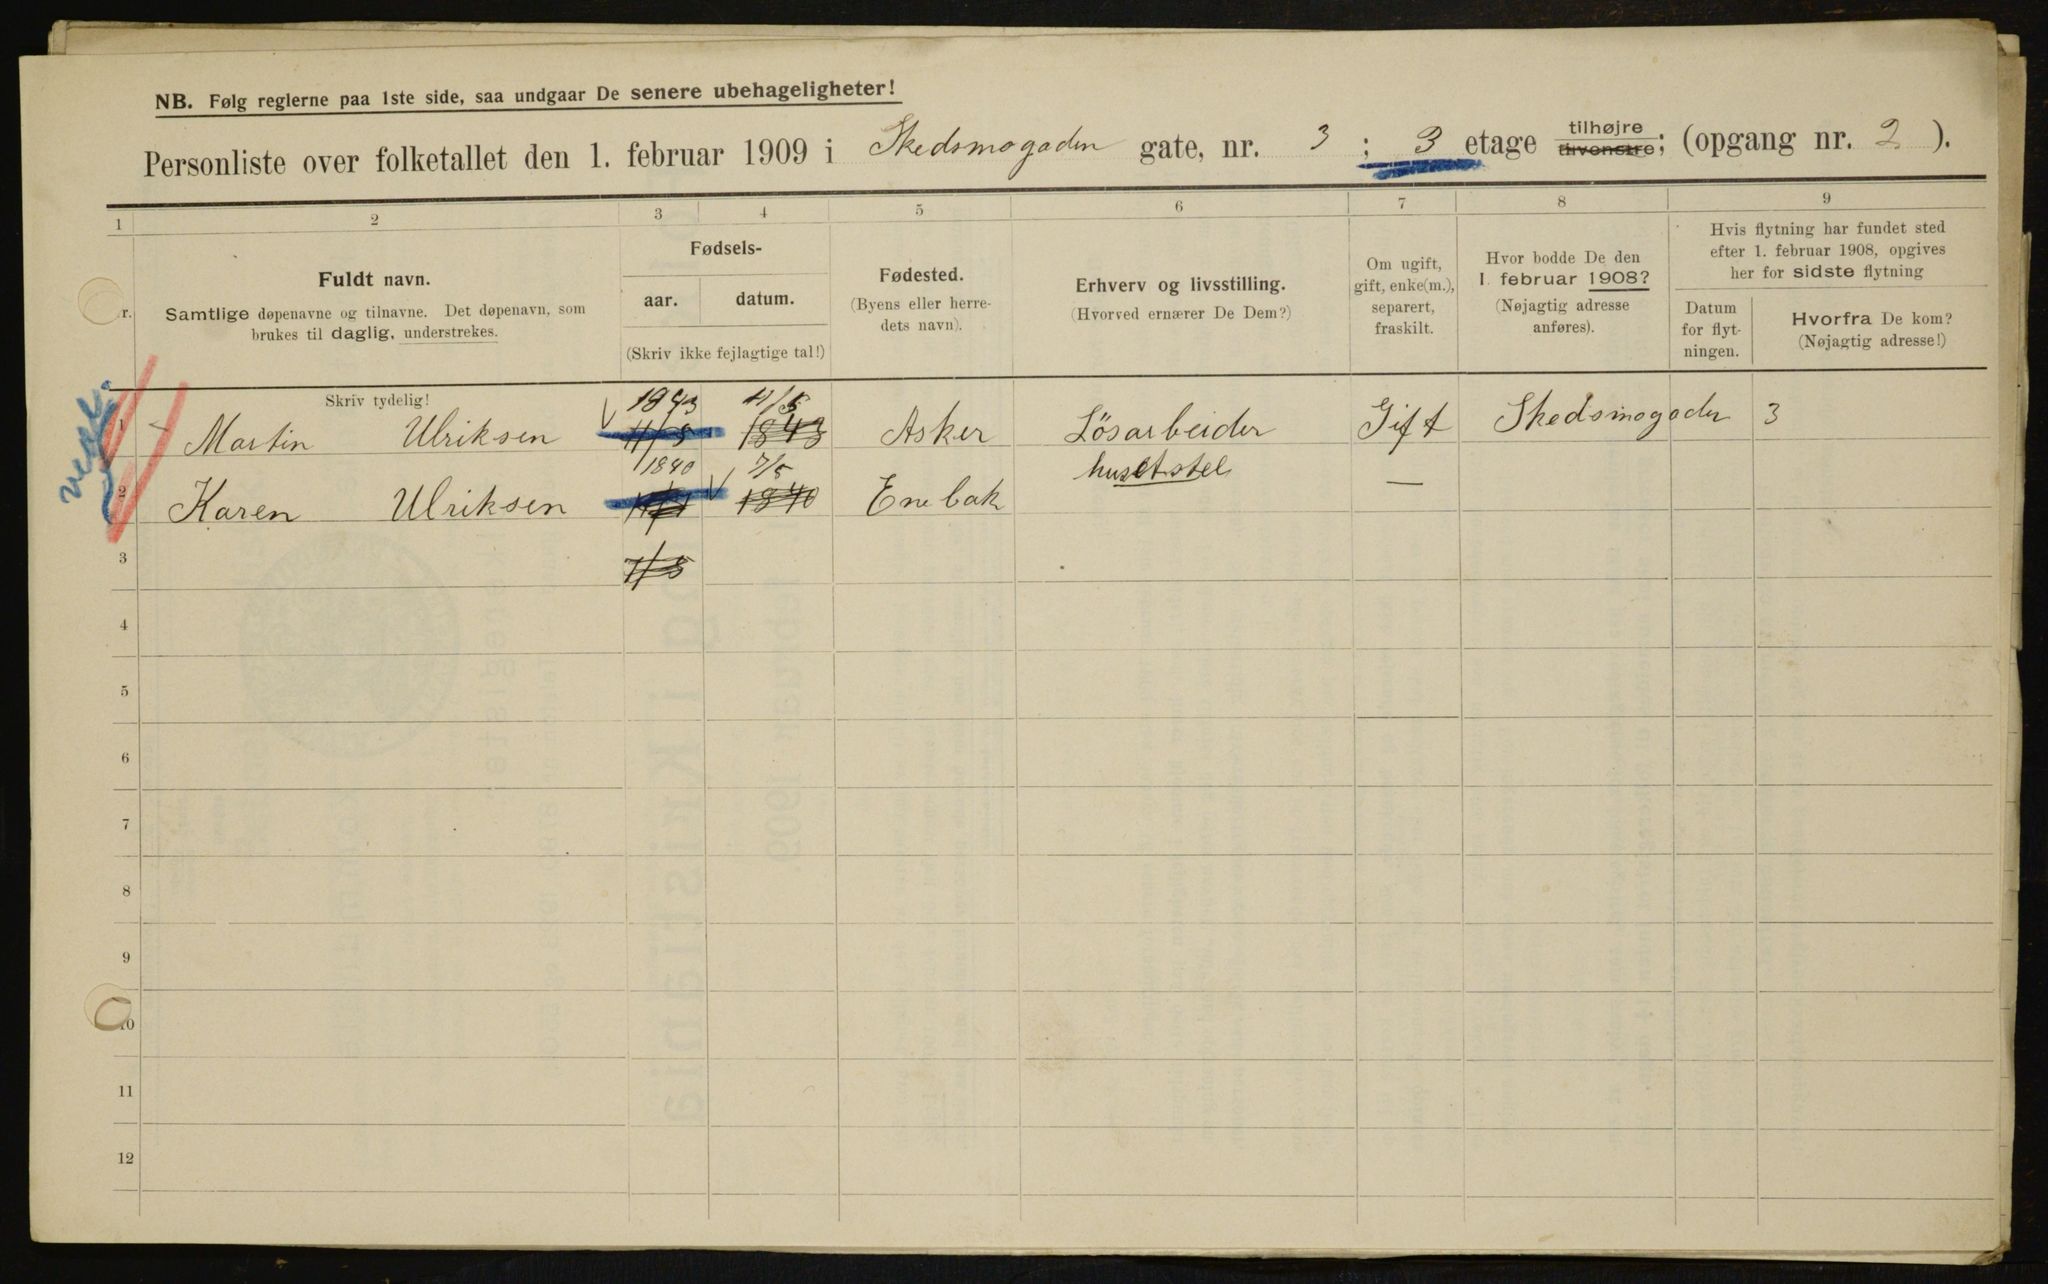 NB. Følg reglerne paa 1ste side, saa undgaar De senere ubehageligheter!
Personliste over folketallet den 1. februar 1909 i Skedsmogaden gate, nr. 3 ; 3 etage tilhøjre tilvenstre; (opgang nr. 2 ).
1 2 3 4 5 6 7 8 9
Fuldt navn.
Samtlige døpenavne og tilnavne. Det døpenavn, som
brukes til daglig, understrekes.
Fødsels-
aar. datum.
(Skriv ikke fejlagtige tal!)
Fødested.
(Byens eller herre-
dets navn).
Erhverv og livsstilling.
(Hvorved ernærer De Dem?)
Om ugift,
gift, enke(m.),
separert,
fraskilt.
Hvor bodde De den
1. februar 1908?
(Nøjagtig adresse
anføres).
Hvis flytning har fundet sted
efter 1. februar 1908, opgives
her for sidste flytning
Datum
for flyt-
ningen.
Hvorfra De kom?
(Nøjagtig adresse!)
Skriv tydelig!
1843 11/5
1 Martin Ulriksen 11/5 1843 Asker Lösarbeider Gift Skedsmogaden 3
1840 7/5 huset stel
2 Karen Ulriksen 1840 Enebak —
3 7/5
4
5
6
7
8
9
10
11
12